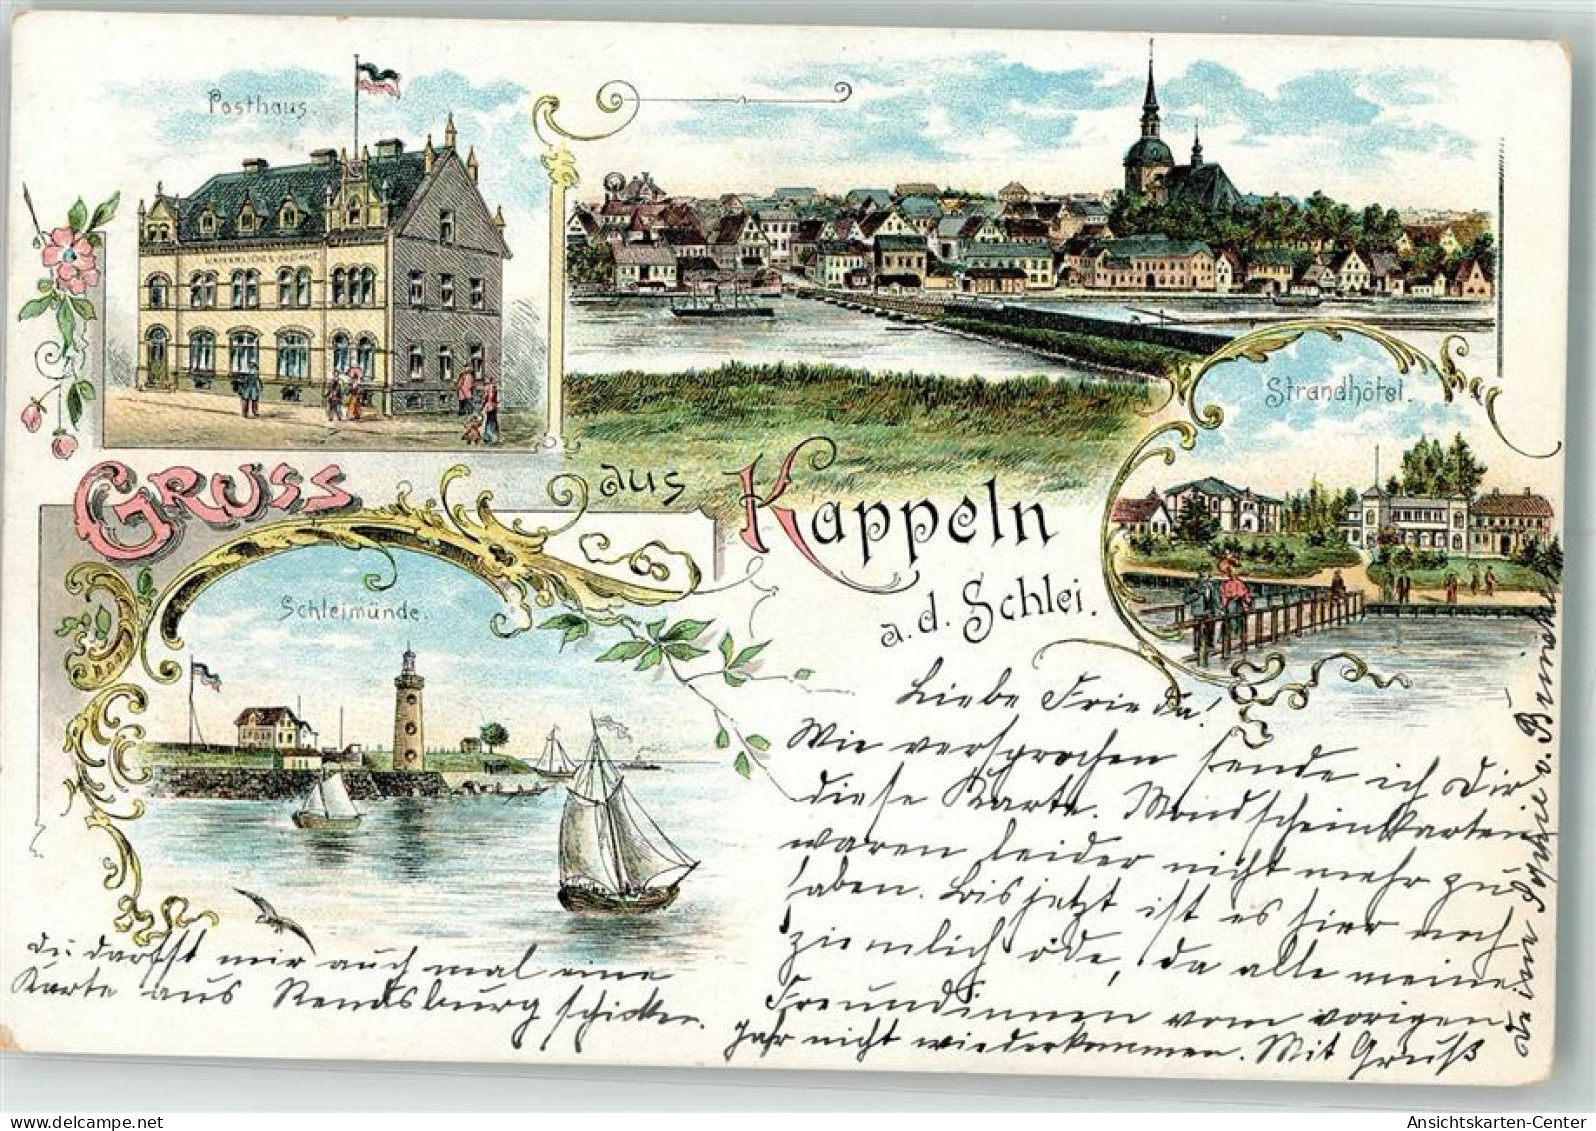 Posthaus.
KAISERLICHES POSTAMT
Strandhôtel.
Gruss aus Kappeln
a. d. Schlei.
Schleimünde.
Liebe Frieda!
Wie versprochen sende ich Dir
diese Karte. Mondscheinkarten
waren leider nicht mehr zu
haben. Bis jetzt ist es hier noch
ziemlich öde, da alle meine
Freundinnen vom vorigen
Jahr nicht wiederkommen. Mit Gruß
Deine Sophie v.
Du darfst mir auch mal eine
Karte aus Rendsburg schicken.
Ansichtskarten-Center
oldthing.de